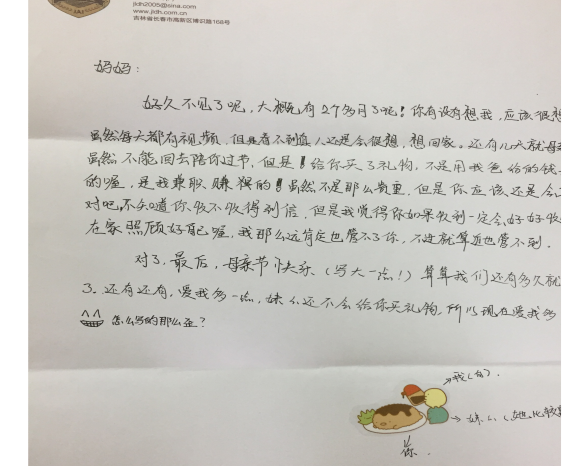 jldh2005@sina.com
www.jldh.com.cn
吉林省长春市高新区博识路168号
妈妈：
好久不见了呢，大概有2个多月了呢！你有没有想我，应该很想
虽然每天都有视频，但是看不到真人还是会很想，想回家。还有几天就母亲
虽然不能回去陪你过节，但是！给你买了礼物，不是用我爸给的钱
的喔，是我兼职赚得的！虽然不是那么贵重，但是你应该还是会
对吧，不知道你收不收得到信，但是我觉得你如果收到一定会好好收
在家照顾好自己喔，我那么远肯定也管不了你，不过就算近也管不到．
对了，最后，母亲节快乐（写大一点！）算算我们还有多久就
3．还有还有，爱我多一点，妹妹还不会给你买礼物，所以现在爱我多
怎么写的那么歪？
我（白）．
妹妹（
比较
你．